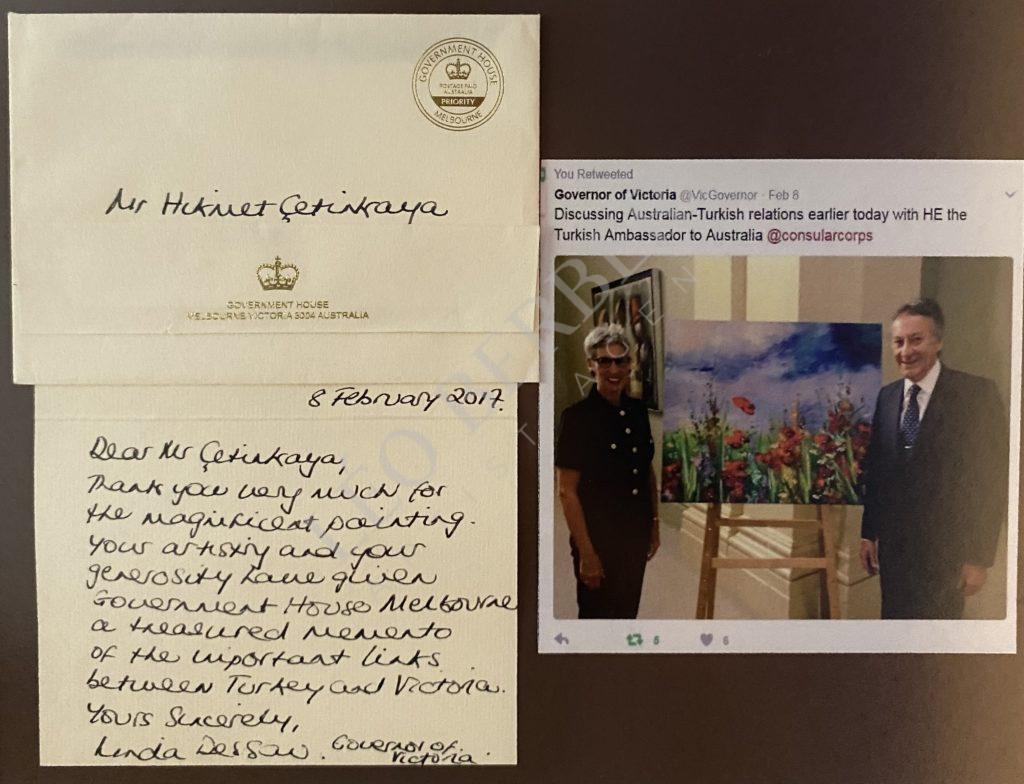 GOVERNMENT HOUSE
POSTAGE PAID
AUSTRALIA
PRIORITY
MELBOURNE
Mr Hikmet Çetinkaya
GOVERNMENT HOUSE
MELBOURNE VICTORIA 3004 AUSTRALIA
8 February 2017.
Dear Mr Çetinkaya,
Thank you very much for
the magnificent painting.
Your artistry and your
generosity have given
Government House Melbourne
a treasured memento
of the important links
between Turkey and Victoria.
Yours Sincerely,
Linda Dessau. Governor of
Victoria.
You Retweeted
Governor of Victoria @VicGovernor · Feb 8
Discussing Australian-Turkish relations earlier today with HE the
Turkish Ambassador to Australia @consularcorps
5 6